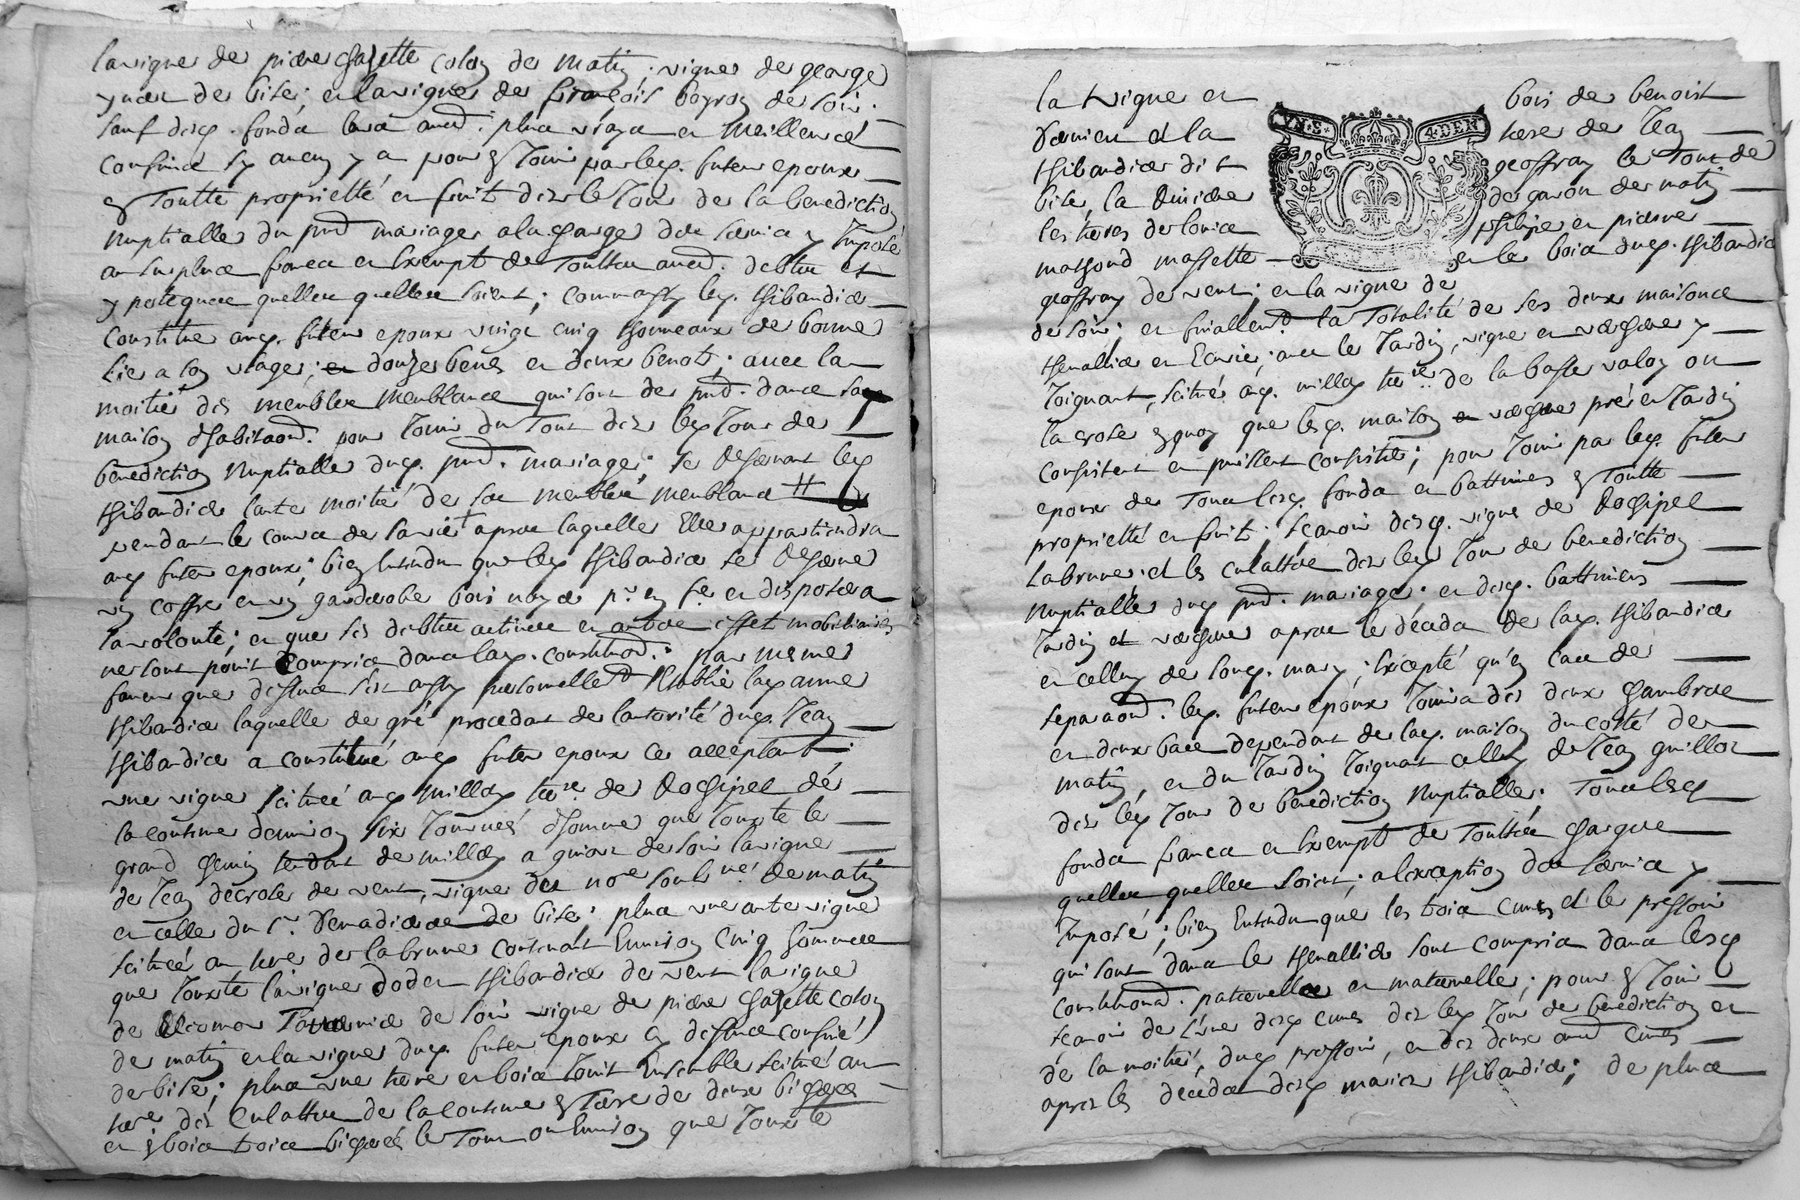 la vigne de pierre Gazette colon de matin; vigne de george
ynard de bise; et la vigne de françois boyron de soir;
sauf desd. fonds leurs aud. plus vrays et meilleurs
confins sy aucun y a pour jouir par led. futur epoux
toutte proprietté et fruit dez le jour de la benediction
nuptialle du pnt mariage a la charge des servis y imposé
au surplus francs et exempt de touttes aud. debtes et
ypoteques quelles quelles soient; comm' aussy led. thibaudier
constitue aud. futur epoux vingt cinq thonneaux de bonne
lie a son usage; douze benes et deux benots; avec la
moitié des meubles meublants qui sont de pnt. dans sa
maison d'habitaon. pour jouir du tout dez led. jour de
benediction nuptialle dud. pnt. mariage; se reservant led.
thibaudier l'autre moitié de ses meubles meublants #
pendant le cours de sa vie apres laquelle elle appartiendra
aud. futur epoux; bien entendu que led. thibaudier se reserve
un coffre et un garderobe bois noyer pr. en disposer a
sa volonté; et que ses debtes actives et autres effet mobiliaires
ne sont point compris dans lad. constitaon. par meme
faveur que dessus s'est aussy personnellemt. establie lad. anne
thibaudier laquelle de gré procedant de l'autorité dud. jean
thibaudier a constitué aud. futur epoux ce acceptant;
une vigne scituée aud. millery tere. de rochipel de
la contenue d'environ six journées d'homme que jouxte le
grand chemin tendant de millery a givors de soir la vigne
de jean decrose de vent, vigne des noe. soub.né de matin
et celle du sr. de bise; plus une autre vigne
scituée au tere. de la brune contenant environ cinq hommées
que jouxte la vigne d'odet thibaudier de vent la vigne
de de soir vigne de pierre Gazette colon
de matin et la vigne dud. futur epoux cy dessus confiné
de bise; plus une terre et bois joint ensemble scitué au
tere. des culattes de la contenue en terre de deux bicherés
et en bois trois bicherés le tout ou environ que jouxte
la vigne et bois de benoist
et la terre de jean
thibaudier dit geoffray le tout de
bise, la riviere de garon de matin
les hoirs de louis philipe et pierre
mathoud massette et le bois dud. thibaudier
geoffray de vent; et la vigne de
de soir; et finallemt. la totalité de ses deux maisons
thenallier et ecurie; avec le jardin, vigne et verchere y
joignant, scitué aud. millery tere. de la basse valon ou
la crose en quoy que lesd. maison verchere pré et jardin
consistent et puissent consister; pour jouir par led. futur
epoux de tous lesd. fonds et battimens en toutte
proprietté et fruit; sçavoir desd. vigne de rochipel
la brune; et les culattes dez led. jour de benediction
nuptialle dud. pnt. mariage; et desd. battimens
jardin et verchere apres le décéds de lad. thibaudier
et celluy de sond. mary; excepté qu'en cas de
separaon. led. futur epoux jouira des deux chambres
et deux bas dependant de lad. maison du costé de
matin, et du jardin joignant celluy de jean guillot
dez led. jour de benediction nuptialle; tous lesd.
fonds francs et exempt de touttes charges
quelles quelles soient; a l'exception des servis y
imposé; bien entendu que les trois cuves et le pressoir
qui sont dans le thenallier sont compris dans lesd.
constitutions. paternelles et maternelle; pour en jouir
sçavoir de l'une desd. cuves dez led. jour de benediction et
de la moitié, dud. pressoir, et des deux aud. cuves
apres les décéds desd. mariez thibaudier; de plus
YN·S· 4·DEN